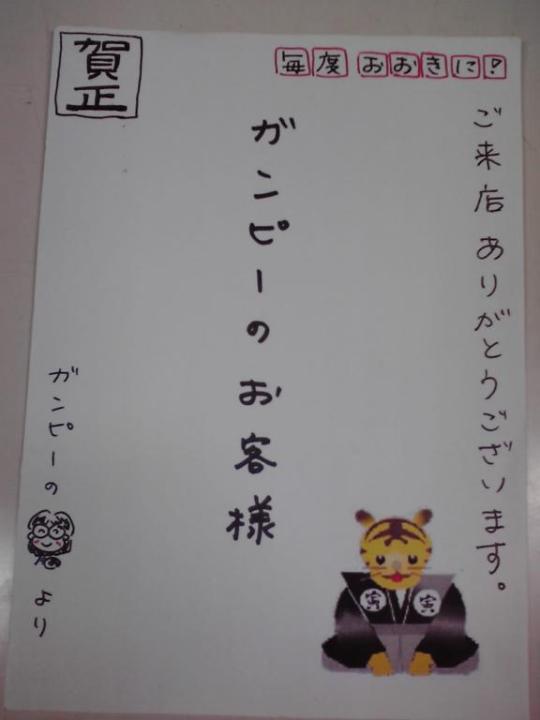 賀正
毎度おおきに!
ご来店ありがとうございます。
ガンピーのお客様
ガンピーの
より
寅 寅